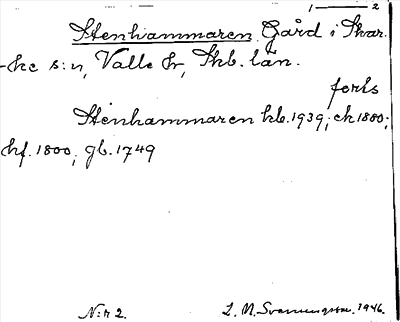 1 — 2
Stenhammaren Gård i Skar-
ke s:n, Valle hr, Skb. län.
forts
Stenhammaren kb. 1939; ek 1880;
hf. 1800; gb. 1749
N:r 2. L. M. Svanungsson. 1946.